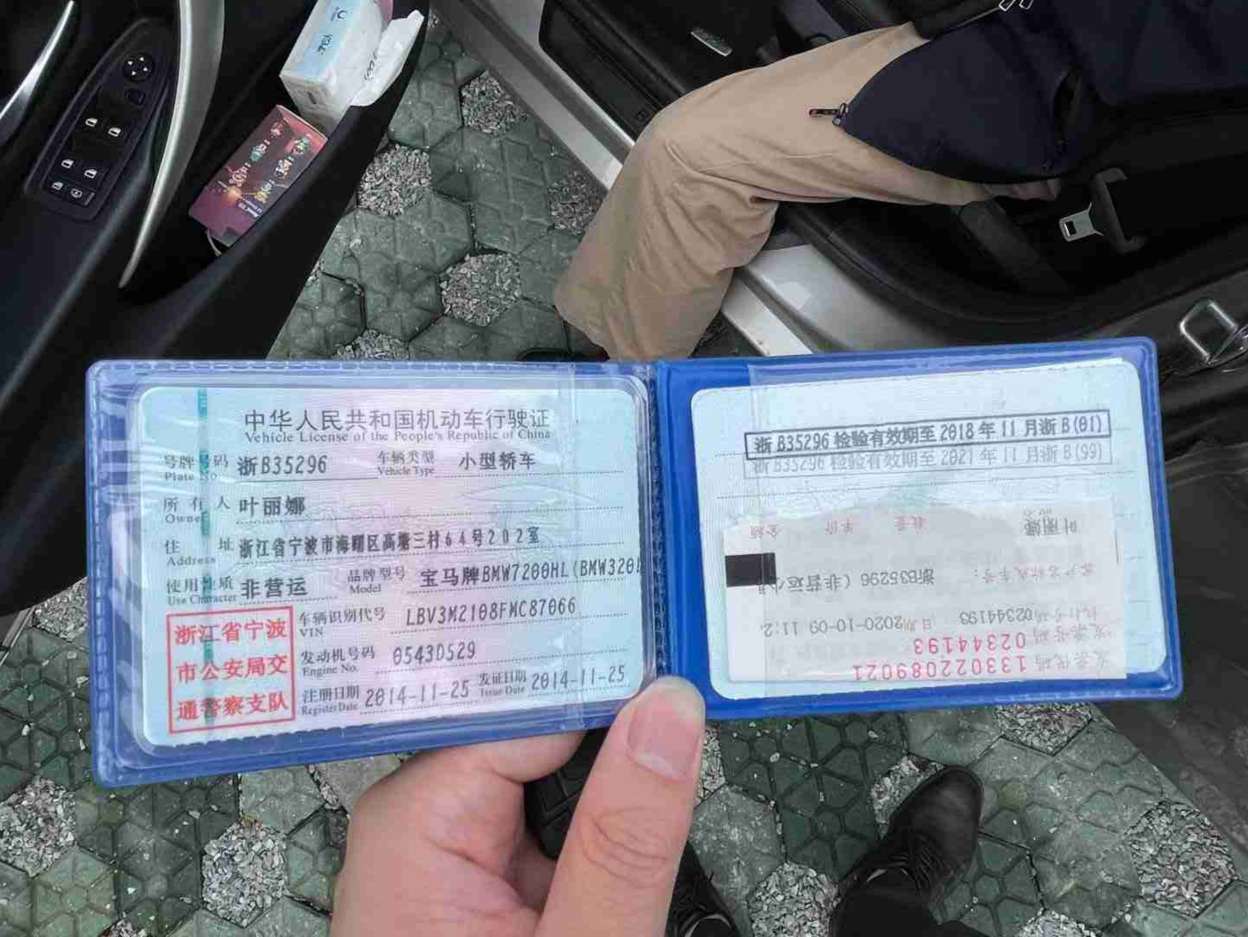 中华人民共和国机动车行驶证
Vehicle License of the People's Republic of China
号牌号码 浙B35296 车辆类型 小型轿车
Plate No. Vehicle Type
所有人 叶丽娜
Owner
住址 浙江省宁波市海曙区高塘三村64号202室
Address
使用性质 非营运 品牌型号 宝马牌BMW7200HL(BMW320i
Use Character Model
浙江省宁波
市公安局交
通警察支队
车辆识别代号 LBV3M2108FMC87066
VIN
发动机号码 05430529
Engine No.
注册日期 2014-11-25 发证日期 2014-11-25
Register Date Issue Date
浙B35296 检验有效期至2018年11月浙B(01)
浙B35296 检验有效期至2021年11月浙B(99)
金额 单价 数量
叶丽娜
浙B35296 (非营运小
日期 2020-10-09 11:2
02344193
发票号码 02344193
发票代码 133022089021